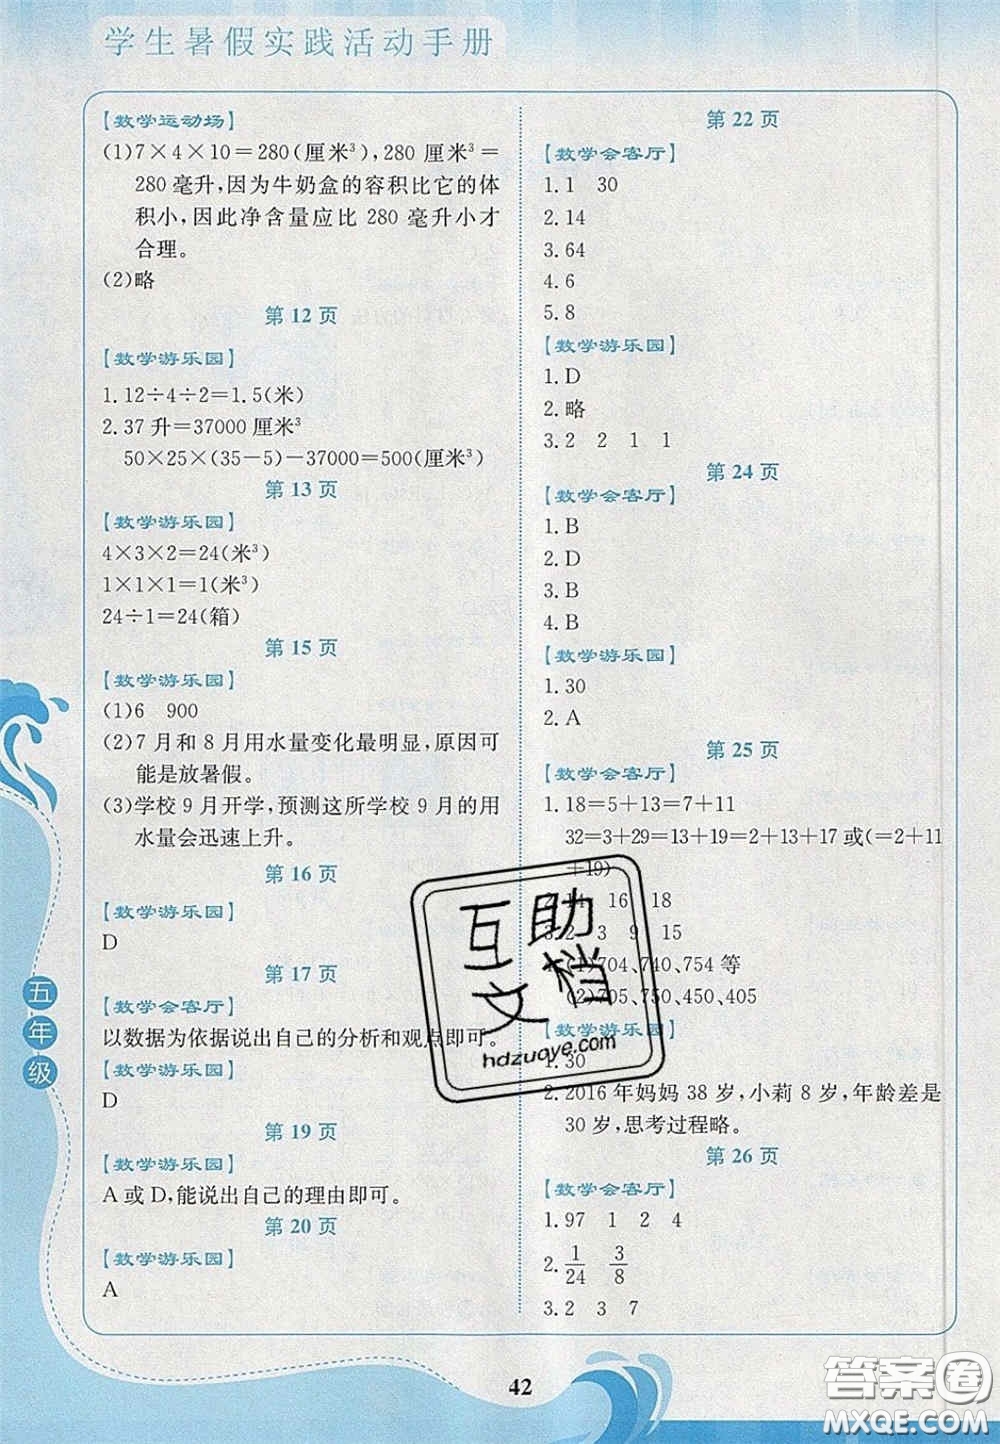 学生暑假实践活动手册
【数学运动场】
(1)7×4×10=280(厘米³),280 厘米³=
280 毫升,因为牛奶盒的容积比它的体
积小,因此净含量应比 280 毫升小才
合理。
(2)略
第 12 页
【数学游乐园】
1.12÷4÷2=1.5(米)
2.37 升=37000 厘米³
50×25×(35-5)-37000=500(厘米³)
第 13 页
【数学游乐园】
4×3×2=24(米³)
1×1×1=1(米³)
24÷1=24(箱)
第 15 页
【数学游乐园】
(1)6 900
(2)7 月和 8 月用水量变化最明显,原因可
能是放暑假。
(3)学校 9 月开学,预测这所学校 9 月的用
水量会迅速上升。
第 16 页
【数学游乐园】
D
第 17 页
【数学会客厅】
以数据为依据说出自己的分析和观点即可。
【数学游乐园】
D
第 19 页
【数学游乐园】
A 或 D,能说出自己的理由即可。
第 20 页
【数学游乐园】
A
第 22 页
【数学会客厅】
1.1 30
2.14
3.64
4.6
5.8
【数学游乐园】
1.D
2.略
3.2 2 1 1
第 24 页
【数学会客厅】
1.B
2.D
3.B
4.B
【数学游乐园】
1.30
2.A
第 25 页
【数学会客厅】
1.18=5+13=7+11
32=3+29=13+19=2+13+17 或(=2+11
+19)
2.14 16 18
3.2 3 9 15
(1)704、740、754 等
(2)705、750、450、405
【数学游乐园】
1.30
2.2016 年妈妈 38 岁,小莉 8 岁,年龄差是
30 岁,思考过程略。
第 26 页
【数学会客厅】
1.97 1 2 4
2.1/24 3/8
3.2 3 7
五年级
42
互助文档
hdzuoye.com
答案圈
MXQE.COM